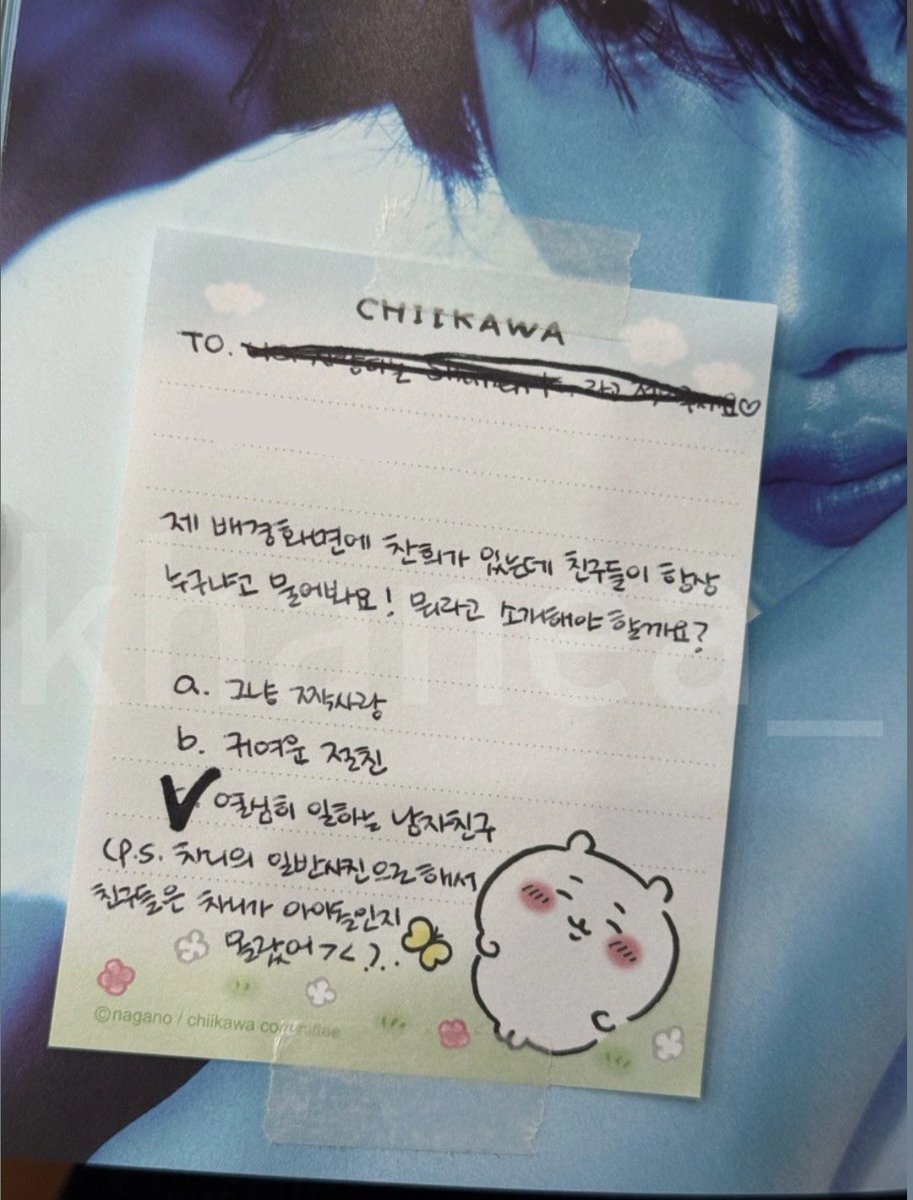 CHIIKAWA
TO. 라고
제 배경화면에 찬희가 있는데 친구들이 항상
누구냐고 물어봐요! 뭐라고 소개해야 할까요?
a. 그냥 짝사랑
b. 귀여운 절친
열심히 일하는 남자친구
(P.S. 차니의 일반사진으로 해서
친구들은 차니가 아이돌인지
몰랐어
©nagano / chiikawa committee
khanea_